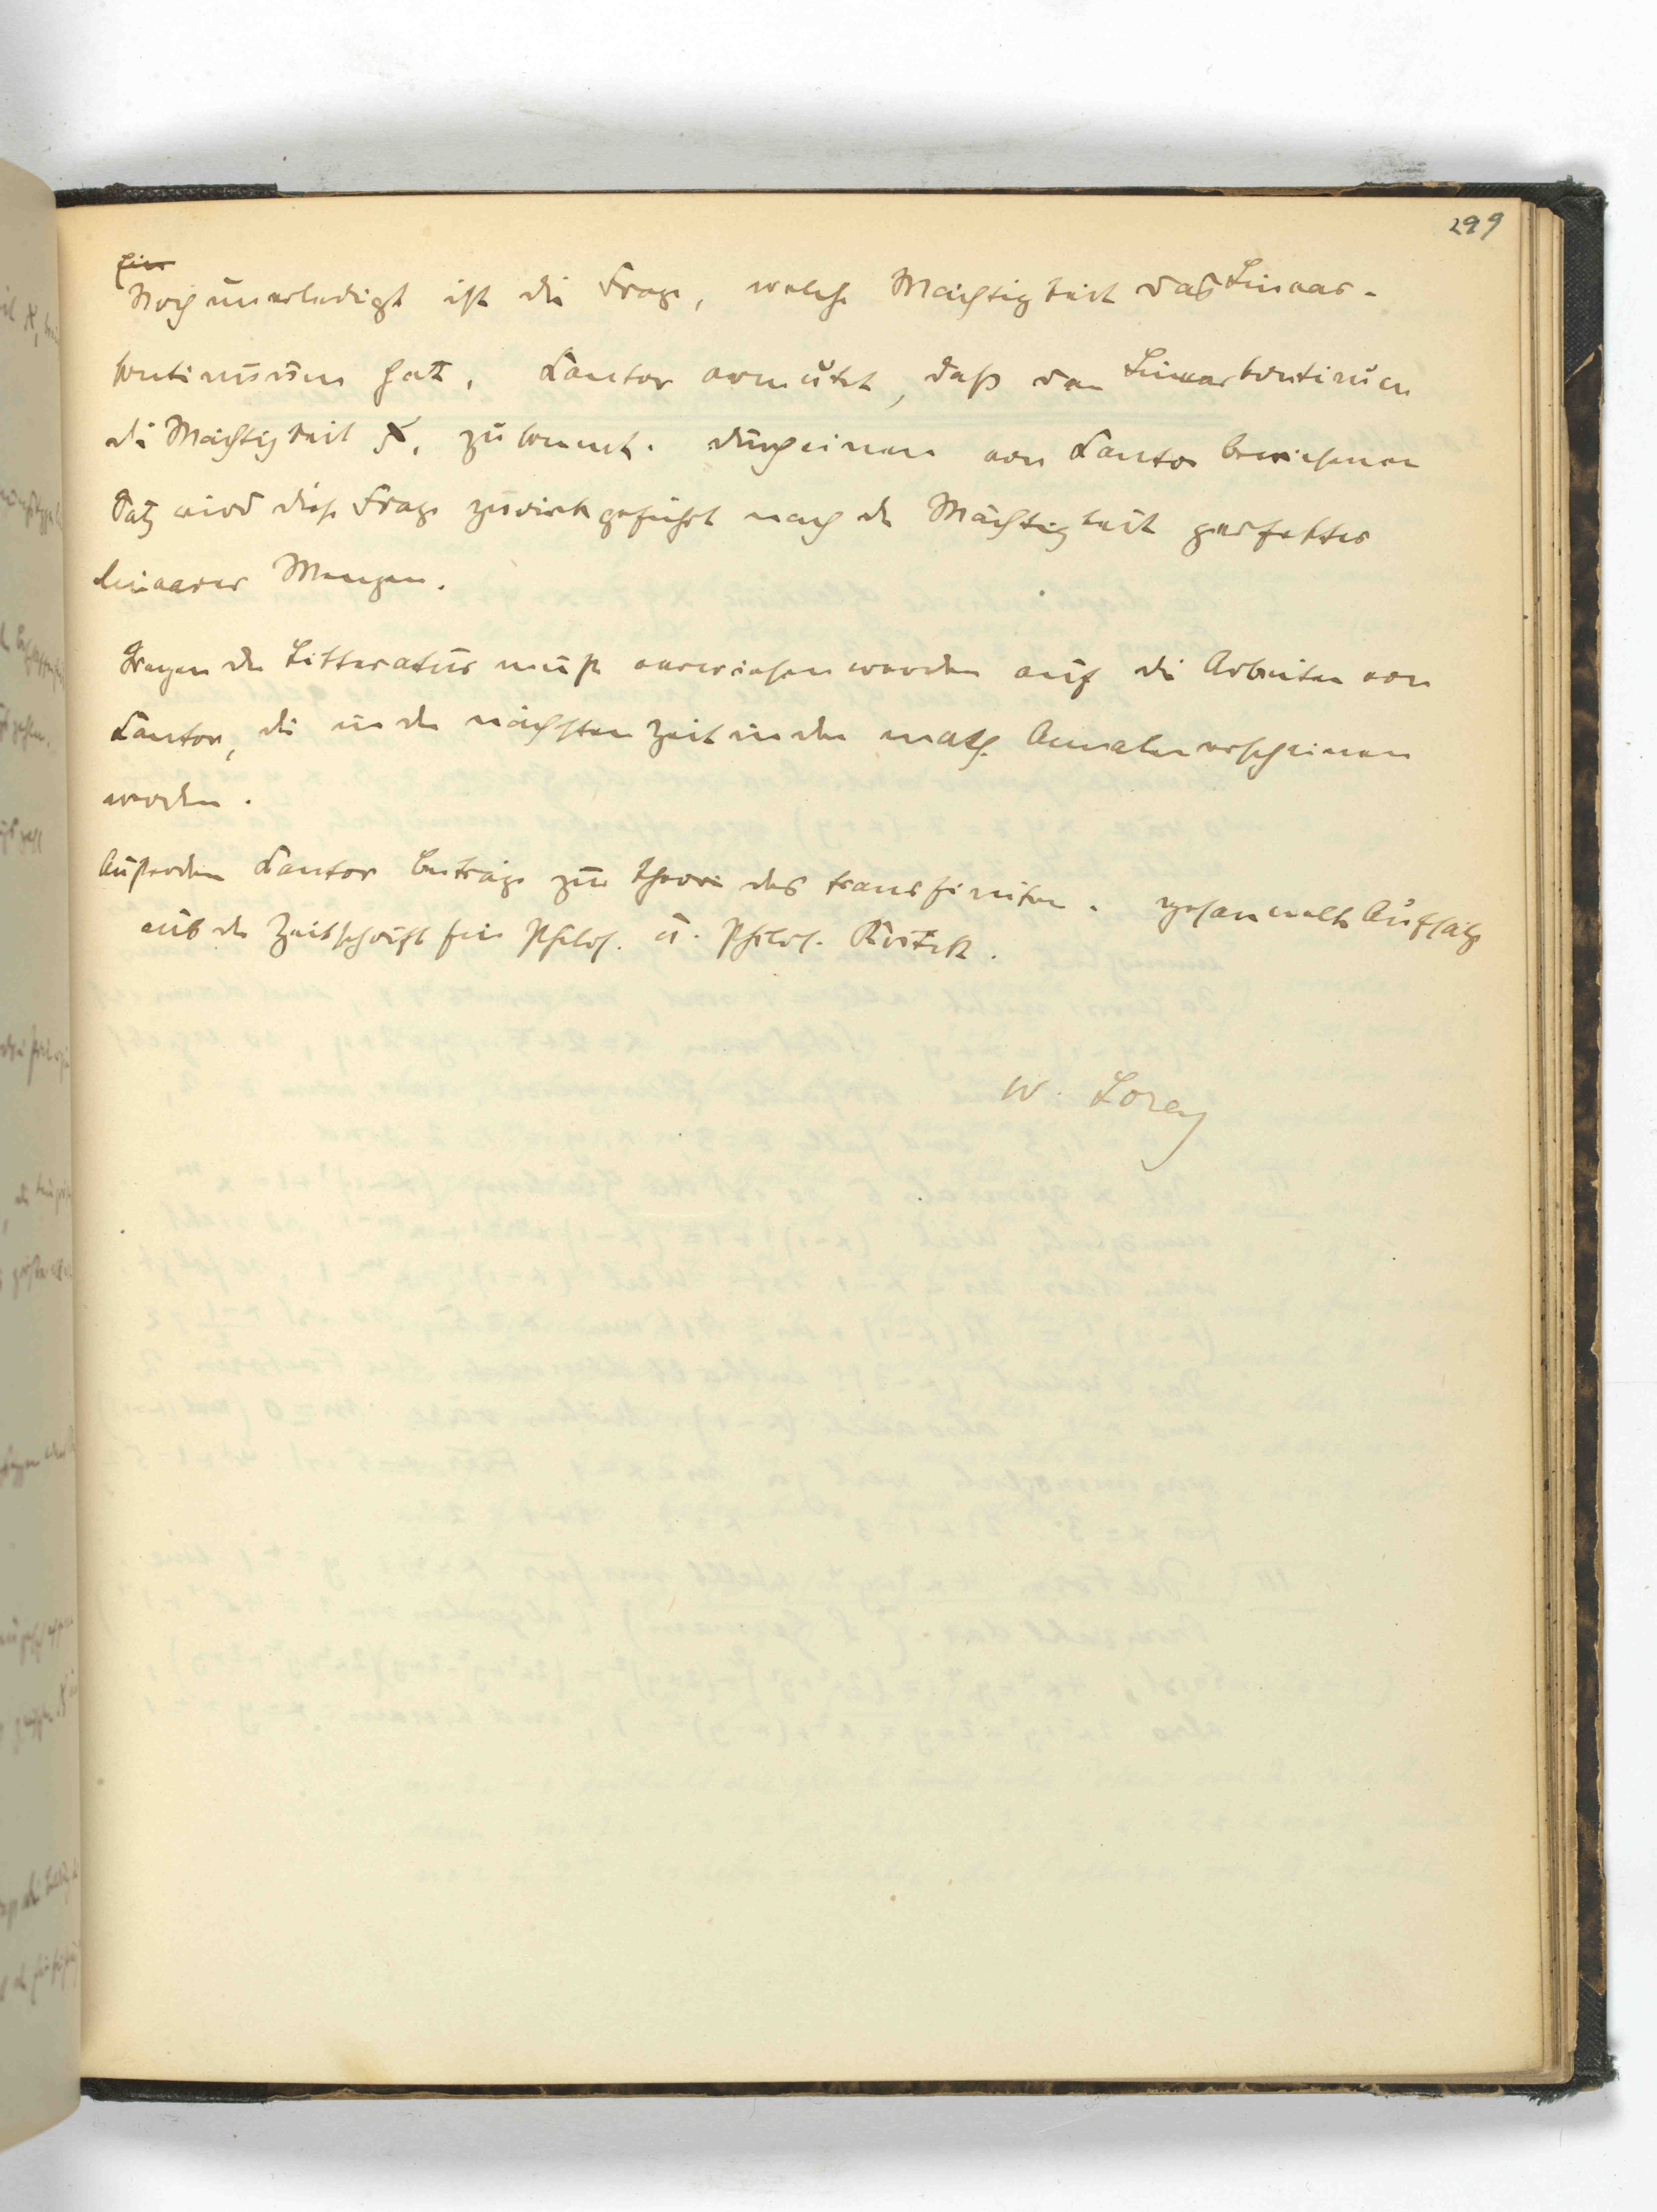 299
Noch unerledigt ist die Frage, welche Mächtigkeit das Linear-
kontinuum hat. Cantor vermutet, daß dem Linearkontinuum
die Mächtigkeit ℵ₁ zukommt. Durch einen von Cantor bewiesenen
Satz wird diese Frage zurückgeführt nach der Mächtigkeit perfekter
linearer Mengen.
Wegen der Litteratur muß verwiesen werden auf die Arbeiten von
Cantor, die in der nächsten Zeit in den math. Annalen erscheinen
werden.
Außerdem Cantor Beiträge zur Theorie des transfiniten. gesammelte Aufsätze
aus der Zeitschrift für Philos. u. philos. Kritik.
W. Lorey